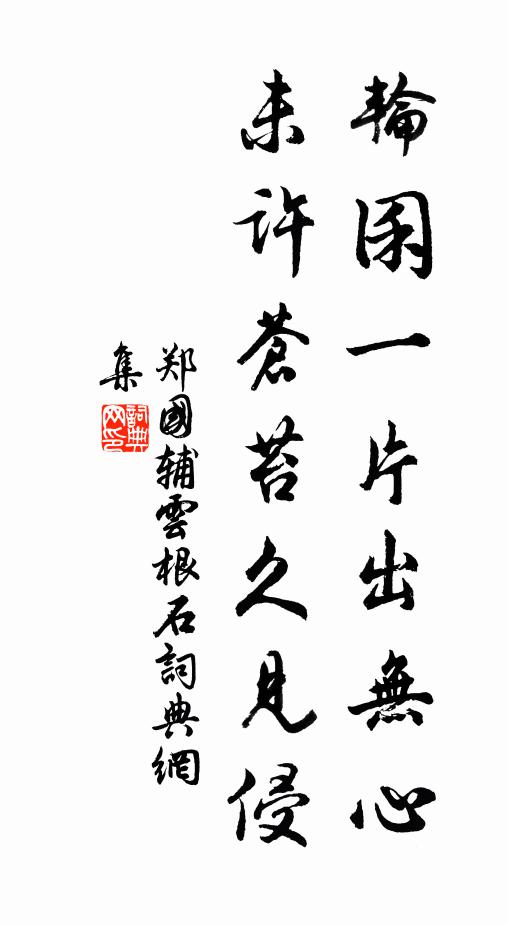 輪囷一片出無心
未許蒼苔久見侵
郑國辅雲根石詞典網
集
詞典网印